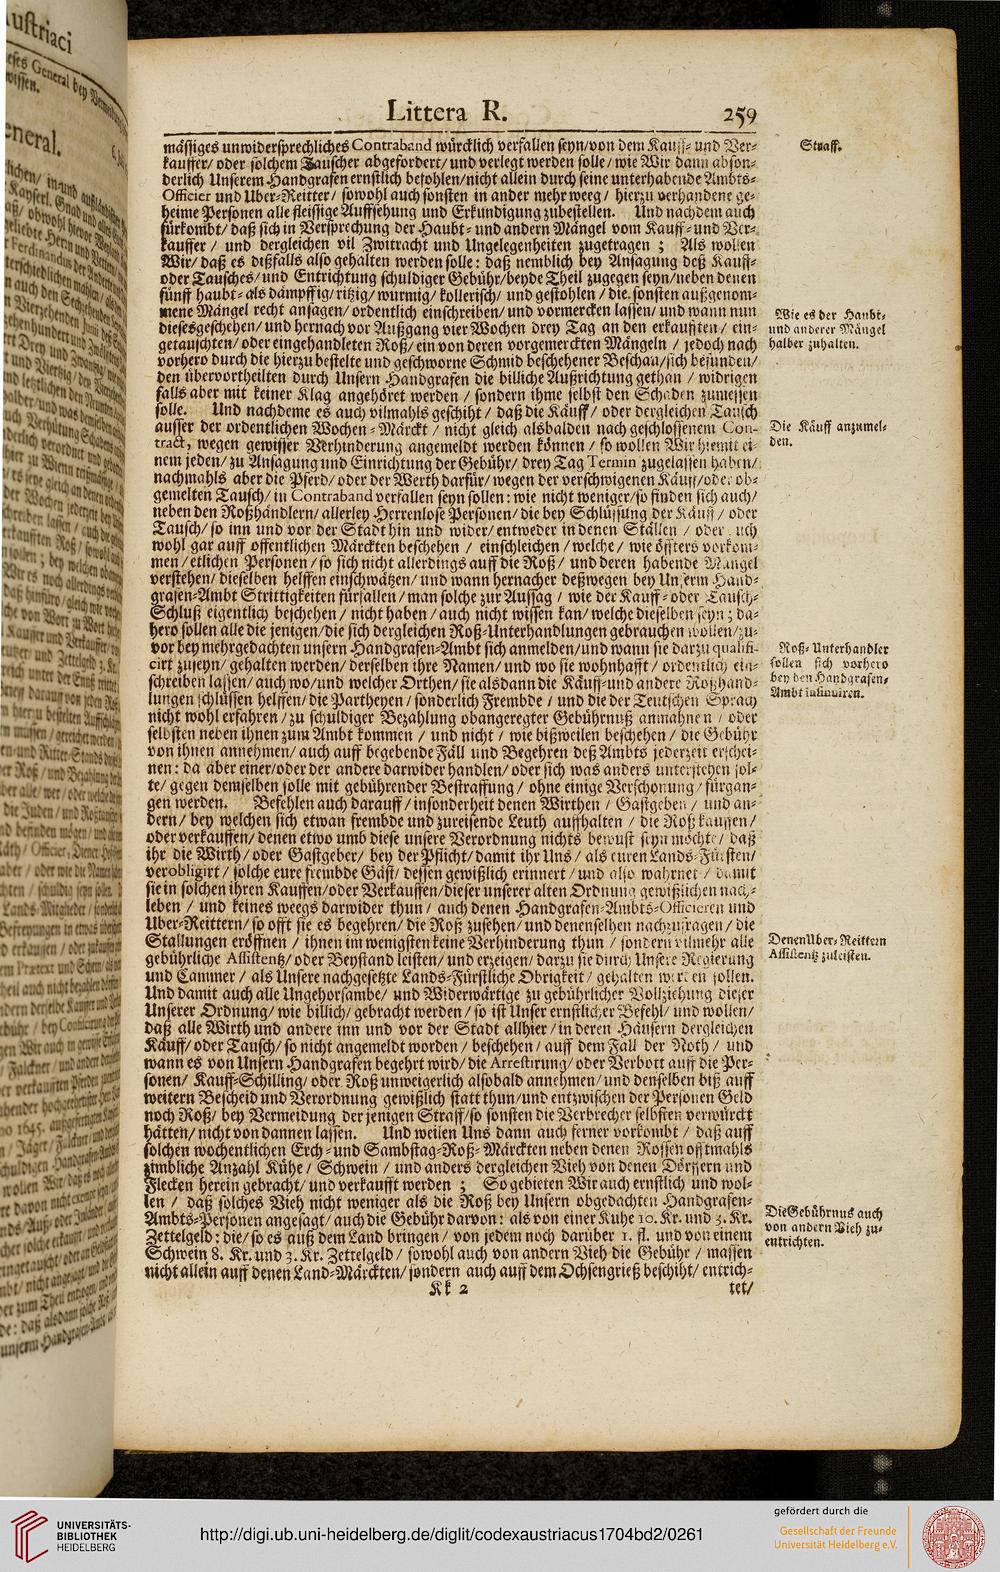 Littera R. 259
mässiges unwidersprechliches Contraband würcklich verfallen seyn/ von dem Kauff- und Ver-
kauffer/ oder solchem Tauscher abgefordert/ und verlegt werden solle/ wie Wir dann abson-
derlich Unserem Handgrafen ernstlich befohlen/ nicht allein durch seine unterhabende Ambts-
Officier und Uber-Reitter/ sowohl auch sonsten in ander mehr weeg/ hierzu verhandene ge-
heime Personen alle fleissige Auffsehung und Erkundigung zubestellen. Und nachdem auch
fürkombt/ daß sich in Versprechung der Haubt- und andern Mängel vom Kauff- und Ver-
kauffer/ und dergleichen vil Zwitracht und Ungelegenheiten zugetragen; Als wollen
Wir/ daß es dißfalls also gehalten werden solle: daß nemblich bey Ansagung deß Kauff-
oder Tausches/ und Entrichtung schuldiger Gebühr/ beyde Theil zugegen seyn/ neben denen
fünff haubt- als dämpffig/ ritzig/ wurmig/ kollerisch/ und gestohlen/ die sonsten außgenom-
mene Mängel recht ansagen/ ordentlich einschreiben/ und vormercken lassen/ und wann nun
dieses geschehen/ und hernach vor Außgang vier Wochen drey Tag an den erkaufften/ ein-
getauschten/ oder eingehandleten Roß/ ein von deren vorgemerckten Mängeln/ jedoch nach
vorhero durch die hierzu bestelte und geschworne Schmid beschehener Beschau/ sich befunden/
den übervortheilten durch Unsern Handgrafen die billiche Außrichtung gethan/ widrigen
falls aber mit keiner Klag angehöret werden/ sondern ihme selbst den Schaden zumessen
solle. Und nachdeme es auch vilmahls geschiht/ daß die Käuff/ oder dergleichen Tausch
ausser der ordentlichen Wochen-Märckt/ nicht gleich alsbalden nach geschlossenem Con-
tract, wegen gewisser Verhinderung angemeldt werden können/ so wollen Wir hiemit ei-
nem jeden/ zu Ansagung und Einrichtung der Gebühr/ drey Tag Termin zugelassen haben/
nachmahls aber die Pferd/ oder der Werth darfür/ wegen der verschwigenen Käuff/ oder ob-
gemelten Tausch/ in Contraband verfallen seyn sollen: wie nicht weniger/ so finden sich auch/
neben den Roßhändlern/ allerley Herrenlose Personen/ die bey Schlüssung der Käuff/ oder
Tausch/ so inn und vor der Stadt hin und wider/ entweder in denen Ställen/ oder auch
wohl gar auff offentlichen Märckten beschehen/ einschleichen/ welche/ wie öffters vorkom-
men/ etlichen Personen/ so sich nicht allerdings auff die Roß/ und deren habende Mängel
verstehen/ dieselben helffen einschwätzen/ und wann hernacher deßwegen bey Unserm Hand-
grafen-Ambt Strittigkeiten fürfallen/ man solche zur Aussag/ wie der Kauff- oder Tausch-
Schluß eigentlich beschehen/ nicht haben/ auch nicht wissen kan/ welche dieselben seyn; da-
hero sollen alle die jenigen/ die sich dergleichen Roß-Unterhandlungen gebrauchen wollen/ zu-
vor bey mehrgedachten unsern Handgrafen-Ambt sich anmelden/ und wann sie darzu qualifi-
cirt zuseyn/ gehalten werden/ derselben ihre Namen/ und wo sie wohnhafft/ ordentlich ein-
schreiben lassen/ auch wo/ und welcher Orthen/ sie alsdann die Käuff- und andere Roßhand-
lungen schlüssen helffen/ die Partheyen/ sonderlich Frembde/ und die der Teutschen Sprach
nicht wohl erfahren/ zu schuldiger Bezahlung obangeregter Gebührnuß anmahnen/ oder
selbsten neben ihnen zum Ambt kommen/ und nicht/ wie bißweilen beschehen/ die Gebühr
von ihnen annehmen/ auch auff begebende Fäll und Begehren deß Ambts jederzeit erschei-
nen: da aber einer/ oder der andere darwider handlen/ oder sich was anders unterstehen sol-
te/ gegen demselben solle mit gebührender Bestraffung/ ohne einige Verschonung/ fürgan-
gen werden. Befehlen auch darauff/ insonderheit denen Wirthen/ Gastgeben/ und an-
dern/ bey welchen sich etwan frembde und zureisende Leuth auffhalten/ die Roß kauffen/
oder verkauffen/ denen etwo umb diese unsere Verordnung nichts bewust seyn möchte/ daß
ihr die Wirth/ oder Gastgeber/ bey der Pflicht/ damit ihr Uns/ als euren Lands-Fürsten/
verobligirt/ solche eure frembde Gäst/ dessen gewißlich erinnert/ und also wahrnet/ damit
sie in solchen ihren Kauffen/ oder Verkauffen/ dieser unserer alten Ordnung gewißlichen nach-
leben/ und keines weegs darwider thun/ auch denen Handgrafen-Ambts-Officieren und
Uber-Reittern/ so offt sie es begehren/ die Roß zusehen/ und denenselben nachzufragen/ die
Stallungen eröffnen/ ihnen im wenigsten keine Verhinderung thun/ sondern vilmehr alle
gebührliche Assistentz/ oder Beystand leisten/ und erzeigen/ darzu sie durch Unsere Regierung
und Cammer/ als Unsere nachgesetzte Lands-Fürstliche Obrigkeit/ gehalten werden sollen.
Und damit auch alle Ungehorsambe/ und Widerwärtige zu gebührlicher Vollziehung dieser
Unserer Ordnung/ wie billich/ gebracht werden/ so ist Unser ernstlicher Befehl/ und wollen/
daß alle Wirth und andere inn und vor der Stadt allhier/ in deren Häusern dergleichen
Käuff/ oder Tausch/ so nicht angemeldt worden/ beschehen/ auff dem Fall der Noth/ und
wann es von Unsern Handgrafen begehrt wird/ die Arrestirung/ oder Verbott auff die Per-
sonen/ Kauff-Schilling/ oder Roß unweigerlich alsobald annehmen/ und denselben biß auff
weitern Bescheid und Verordnung gewißlich statt thun/ und entzwischen der Personen Geld
noch Roß/ bey Vermeidung der jenigen Straff/ so sonsten die Verbrecher selbsten verwürckt
hätten/ nicht von dannen lassen. Und weilen Uns dann auch ferner vorkombt/ daß auff
solchen wochentlichen Erch- und Sambstag-Roß-Märckten neben denen Rossen offtmahls
zimbliche Anzahl Kühe/ Schwein/ und anders dergleichen Vieh von denen Dörffern und
Flecken herein gebracht/ und verkaufft werden; So gebieten Wir auch ernstlich und wol-
len/ daß solches Vieh nicht weniger als die Roß bey Unsern obgedachten Handgrafen-
Ambts-Personen angesagt/ auch die Gebühr darvon: als von einer Kuhe 10. Kr. und 3. Kr.
Zettelgeld: die/ so es auß dem Land bringen/ von jedem noch darüber 1. fl. und von einem
Schwein 8. Kr. und 3. Kr. Zettelgeld/ sowohl auch von andern Vieh die Gebühr/ massen
nicht allein auff denen Land-Märckten/ sondern auch auff dem Ochsengrieß beschiht/ entrich-
Kk 2 tet/
Straff.
Wie es der Haubt-
und anderer Mängel
halber zuhalten.
Die Käuff anzumel-
den.
Roß-Unterhandler
sollen sich vorhero
bey den Handgrafen-
Ambt insinuiren.
Denen Uber-Reittern
Assistentz zuleisten.
Die Gebührnus auch
von andern Vieh zu-
entrichten.
UNIVERSITÄTS-
BIBLIOTHEK
HEIDELBERG
http://digi.ub.uni-heidelberg.de/diglit/codexaustriacus1704bd2/0261
gefördert durch die
Gesellschaft der Freunde
Universität Heidelberg e.V.